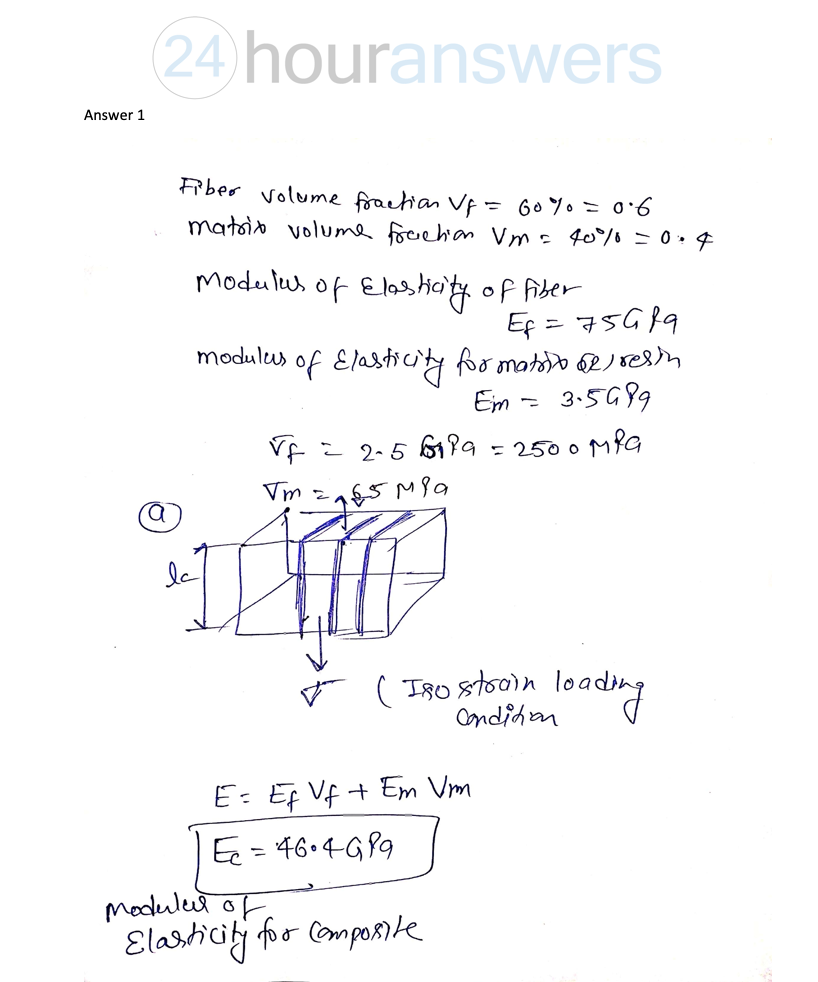 24 houranswers
Answer 1
Fiber volume fraction Vf = 60% = 0.6
matrix volume fraction Vm = 40% = 0.4
Modulus of Elasticity of fiber
Ef = 75GPa
modulus of Elasticity for matrix (or) resin
Em = 3.5GPa
σf = 2.5 GPa = 2500MPa
σm = 65 MPa
a
lc
σ (Iso strain loading
condition
E = Ef Vf + Em Vm
Ec = 46.4GPa
Modulus of
Elasticity for Composite